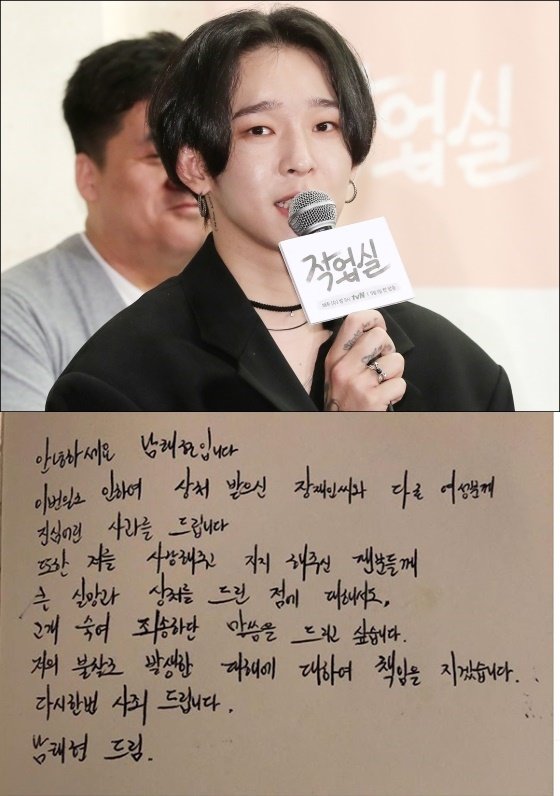 작업실
작업실
tvN
안녕하세요 남태현입니다
이번일로 인하여 상처 받으신 장재인씨와 다른 여성분께
진심어린 사과를 드립니다
또한 저를 사랑해주고 지지 해주신 팬분들께
큰 실망과 상처를 드린 점에 대해서도,
고개 숙여 죄송하단 말씀을 드리고 싶습니다.
저의 불찰로 발생한 피해에 대하여 책임을 지겠습니다.
다시한번 사죄 드립니다.
남태현 드림.